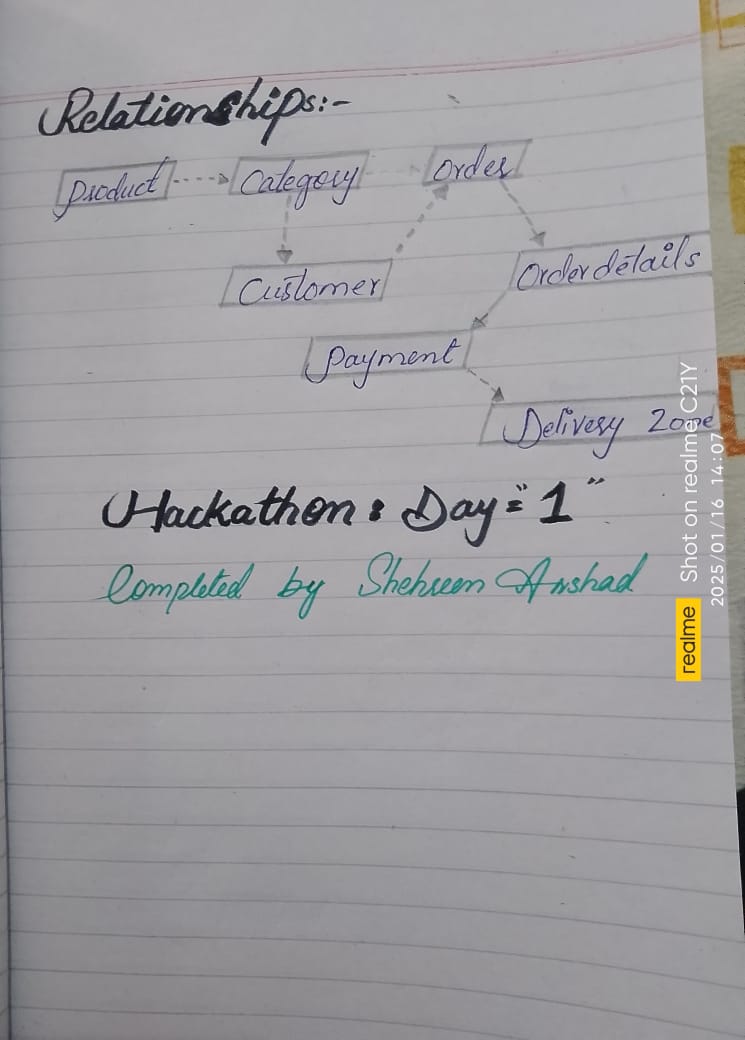 Relationships:-
Product Category Order
Customer Orderdetails
Payment
Delivery Zone
Hackathon: Day="1"
Completed by Shehreen Arshad
realme Shot on realme C21Y
2025/01/16 14:07